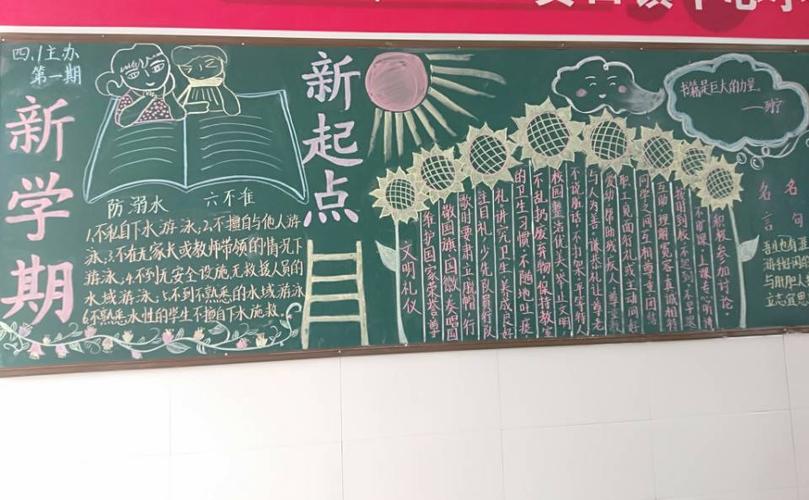 四.1主办
第一期
新学期
新起点
防溺水 六不准
1、不私自下水游泳;2、不擅自与他人游
泳;3、不在无家长或教师带领的情况下
游泳;4、不到无安全设施、无救援人员的
水域游泳;5、不到不熟悉的水域游泳
6、不熟悉水性的学生不擅自下水施救.
文明礼仪
维护国家荣誉,尊
敬国旗、国徽,奏唱国
歌时要肃立、脱帽、行
注目礼,少先队员行队
礼。讲究卫生,养成良好
的卫生习惯,不随地吐痰,
不乱扔废弃物,保持教室
校园整洁优美。举止文明
不说脏话,不打架。平等待人
与人为善,谦恭礼让,尊老
爱幼,帮助残疾人,尊重教
职工,见面行礼或主动问好
同学之间互相尊重、团结
互助、理解宽容、真诚相待
按时到校,不迟到,不早退
不旷课。上课专心听讲
积极参加讨论。
书籍是巨大的力量。
名言
名句